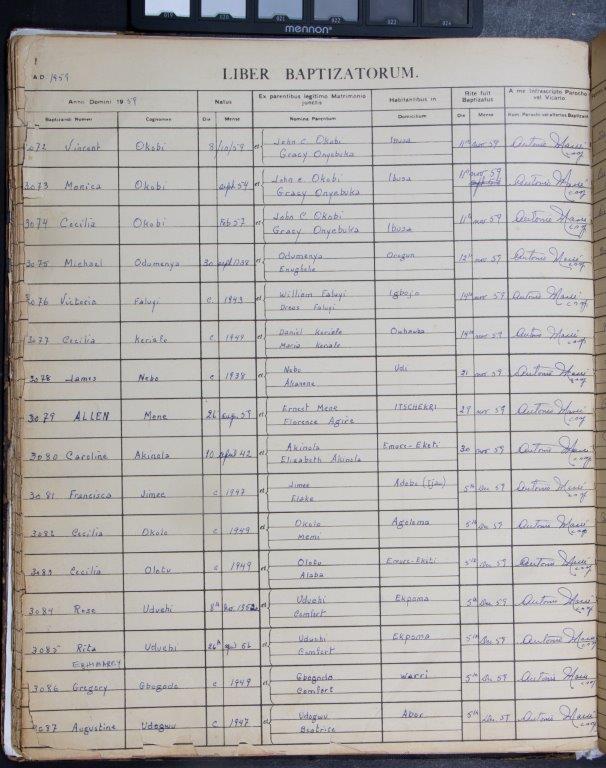 019 021 022 023 024
mennon
A.D. 1959
LIBER BAPTIZATORUM.
Anno Domini 1959 Natus Ex parentibus legitimo Matrimonio junctis Habitantibus in Rite fuit Baptizatus A me Infrascripto Parocho vel Vicario
Baptizandi Nomen Cognomen Die Mense Nomina Parentum Domicilium Die Mense
3072 Vincent Okobi 8/10/59 et John C. Okobi Ibusa 11th nov 59 Antonio
Gracy Onyebuka
3073 Monica Okobi sept 54 et John C. Okobi Ibusa 11th nov 59 Antonio
Gracy Onyebuka
3074 Cecilia Okobi Feb 57 et John C Okobi 11th nov 59 Antonio
Gracy Onyebuka Ibusa
3075 Michael Odumenya 30 sept 1938 et Odumenya 12th nov 59 Antonio
3076 Victoria Faluyi c. 1943 et William Faluyi Igboja 14th nov 59 Antonio
Faluyi
3077 Cecilia Keriale c 1949 et Daniel Keriale 14th nov 59 Antonio
Maria Keriale
3078 James Nebo c 1938 et Nebo Udi 21 nov 59 Antonio
3079 ALLEN Mene 26 59 et Ernest Mene ITSCHEKRI 29 nov 59 Antonio
Florence Agire
3080 Caroline Akinola 10 april 42 et Akinola Emure-Ekiti 30 nov 59 Antonio
Elizabeth Akinola
3081 Francisca Jimee c 1947 et Jimee (Ijaw) 5th Dec 59 Antonio
3082 Cecilia Okolo c 1949 et Okolo Ageloma 5th Dec 59 Antonio
Memi
3083 Cecilia Olotu c 1949 et Olotu Emure-Ekiti 5th Dec 59 Antonio
Alaba
3084 Rose Uduehi 8th Nov 1952 et Uduehi Ekpoma 5th Dec 59 Antonio
Comfort
3085 Rita Uduehi 26th 56 et Uduehi Ekpoma 5th Dec 59 Antonio
Comfort
3086 Gregory Gbogodo c 1949 et Gbogodo Warri 5th Dec 59 Antonio
Comfort
3087 Augustine Udogwu c 1947 et Udogwu Abor 5th Dec. 59 Antonio
Beatrice